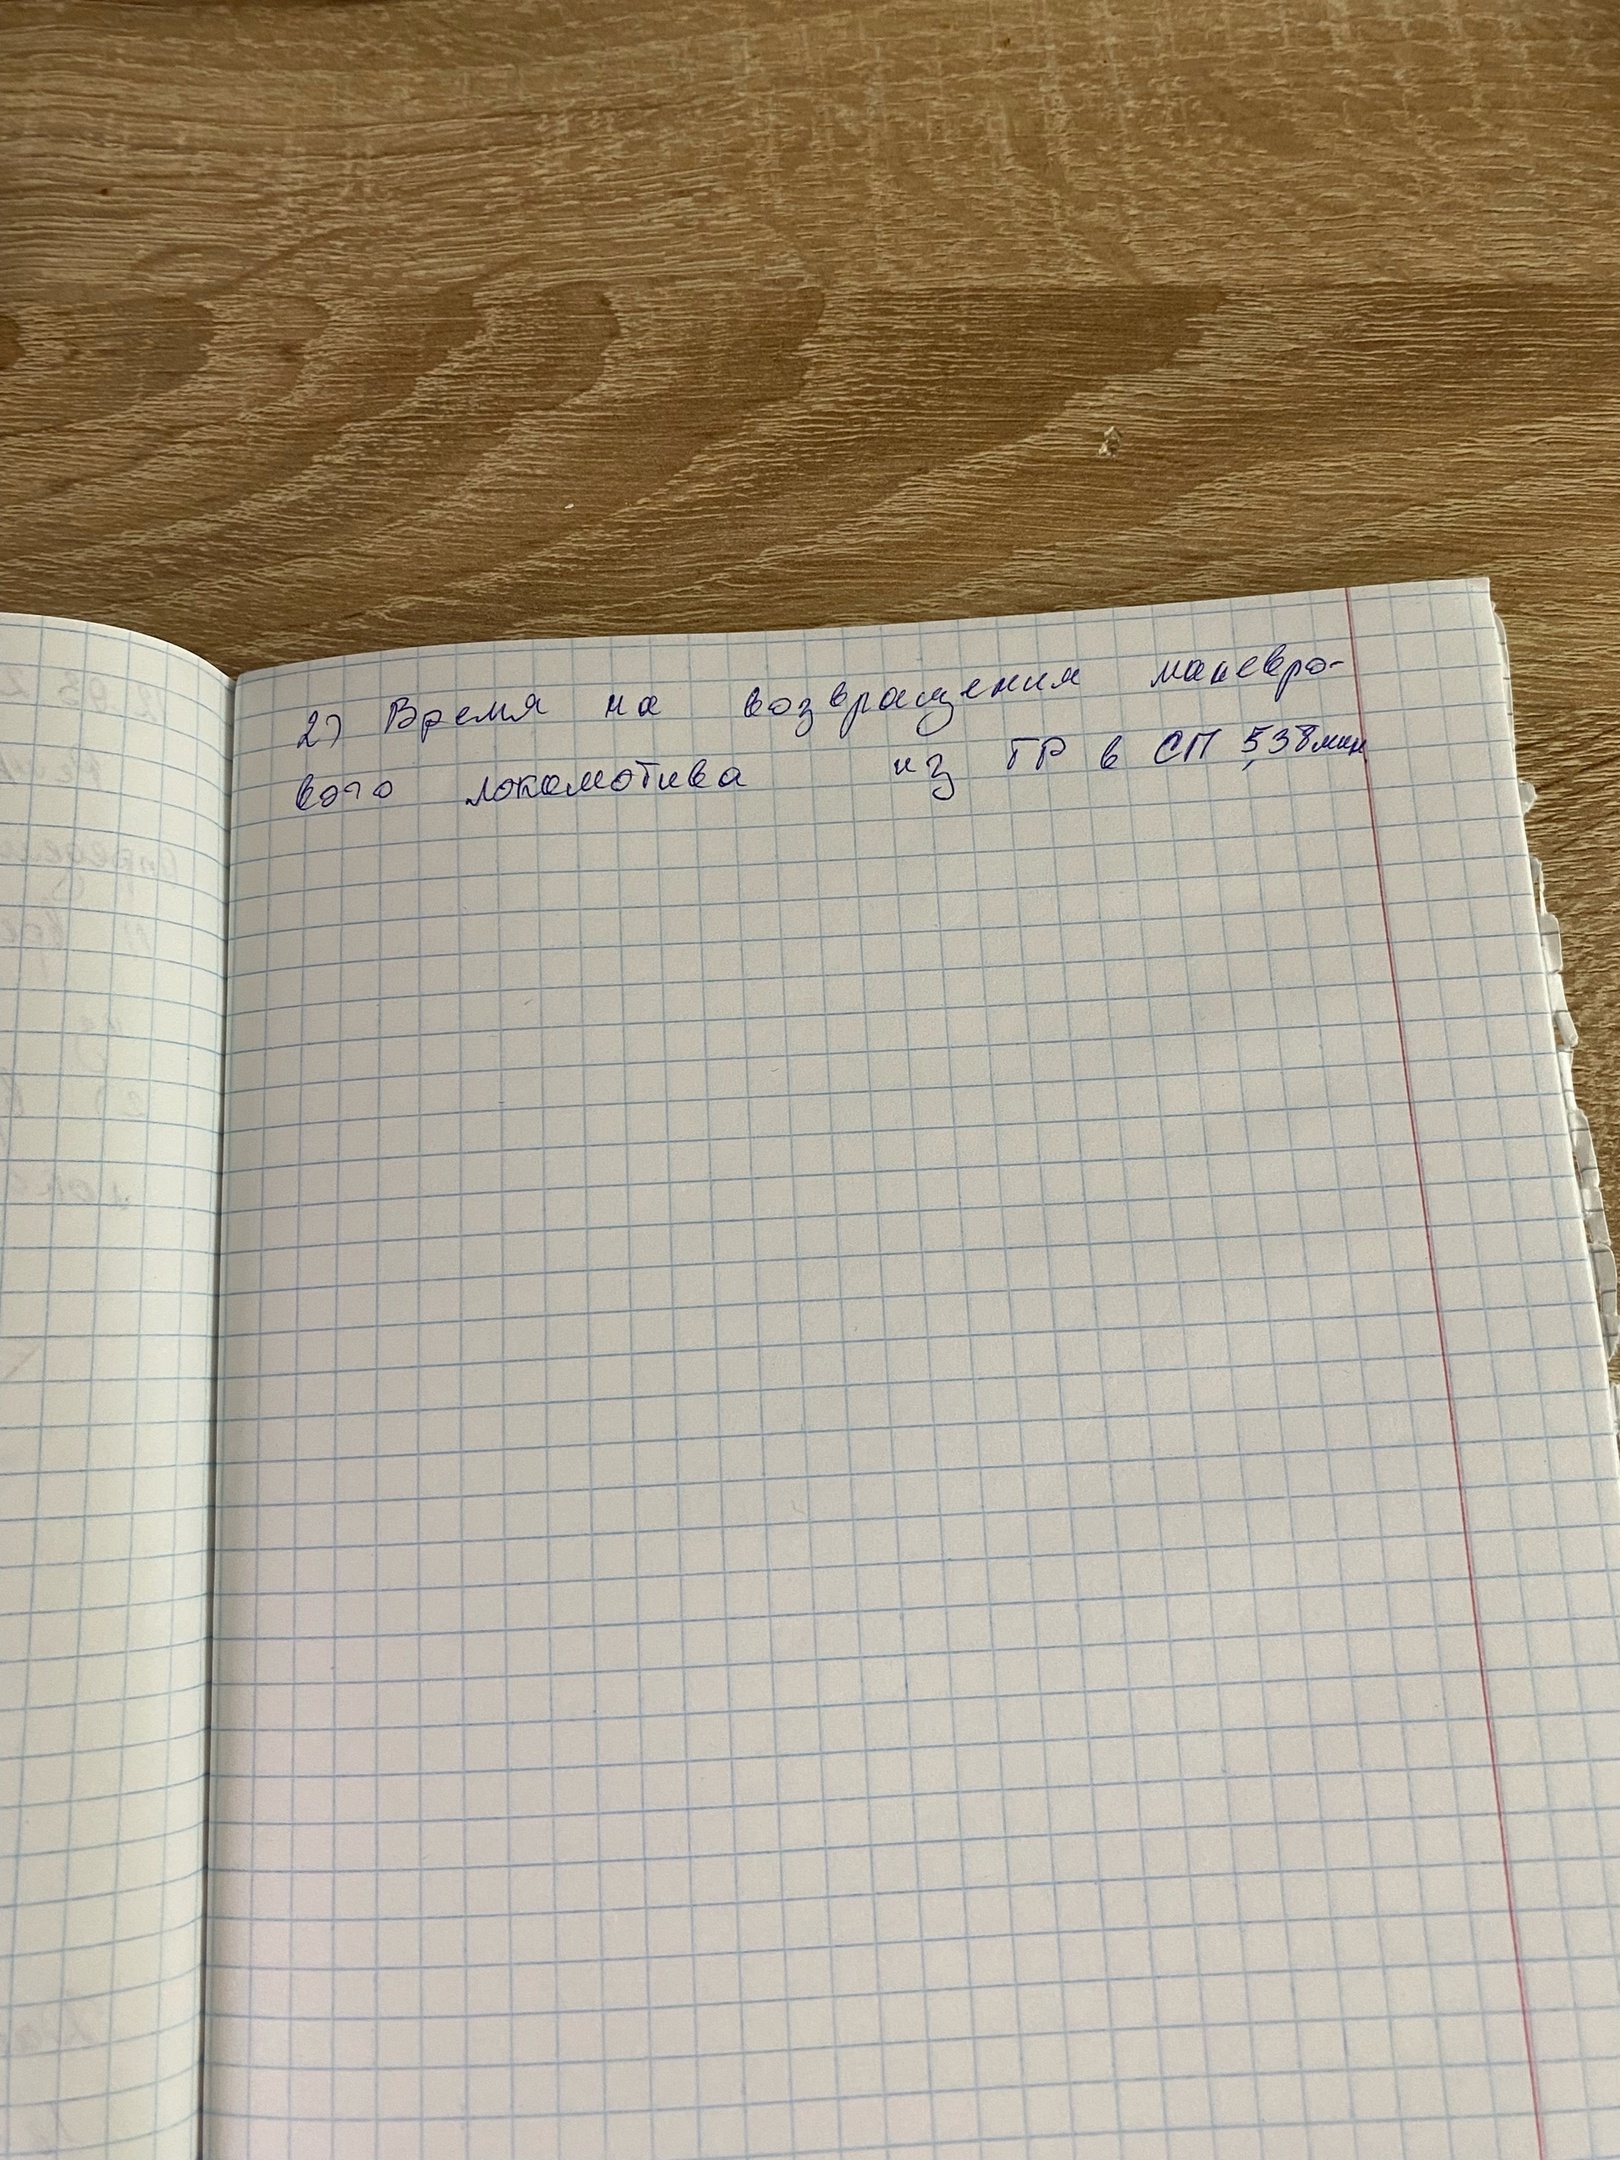 2) Время на возвращения маневро-
вого локомотива из ГР в СП 5,38мин